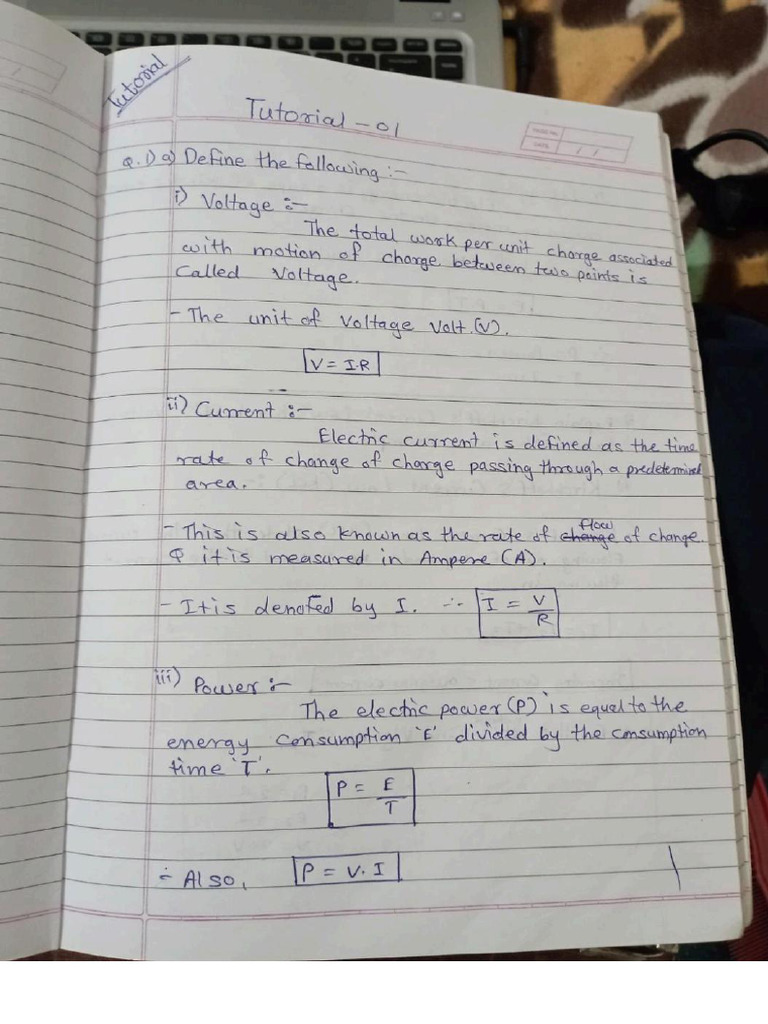 Tutorial
Tutorial - 01
PAGE NO.
DATE / /
Q.1) a) Define the following :-
i) Voltage :-
The total work per unit charge associated
with motion of charge between two points is
called voltage.
- The unit of voltage volt.(V).
V = I.R
ii) Current :-
Electric current is defined as the time
rate of change of charge passing through a predetermined
area.
- This is also known as the rate of change flow of change.
& it is measured in Ampere (A).
- It is denoted by I. ∴ I = V/R
iii) Power :-
The electric power (P) is equal to the
energy consumption 'E' divided by the consumption
time 'T'.
P = E/T
- Also, P = V.I